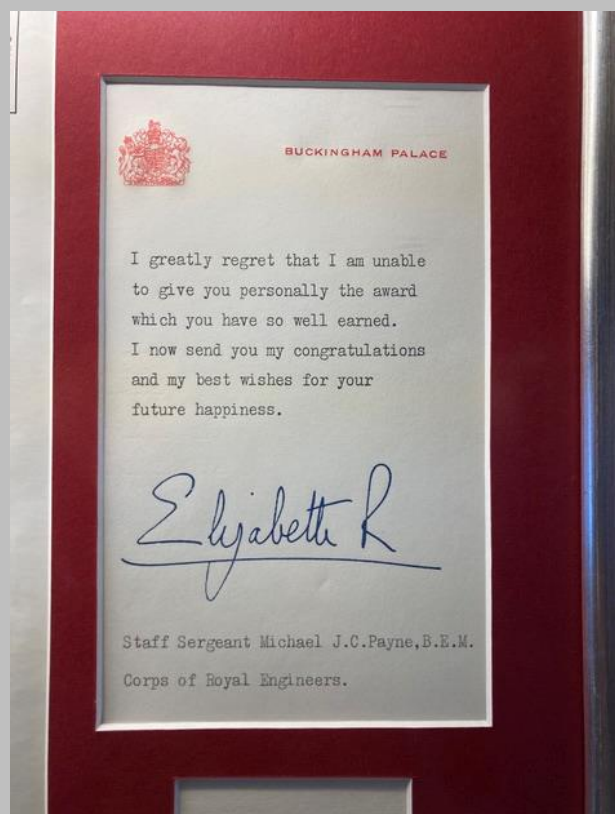 BUCKINGHAM PALACE
I greatly regret that I am unable
to give you personally the award
which you have so well earned.
I now send you my congratulations
and my best wishes for your
future happiness.
Elizabeth R
Staff Sergeant Michael J.C.Payne,B.E.M.
Corps of Royal Engineers.